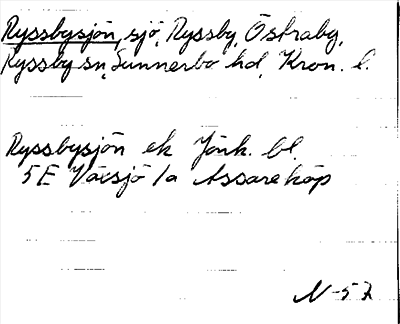 Ryssbysjön, sjö, Ryssby, Östraby,
Ryssby sn, Sunnerbo hd, Kron. l.
Ryssbysjön ek Jönk. bl.
5E Växsjö 1a Assareköp
N-57